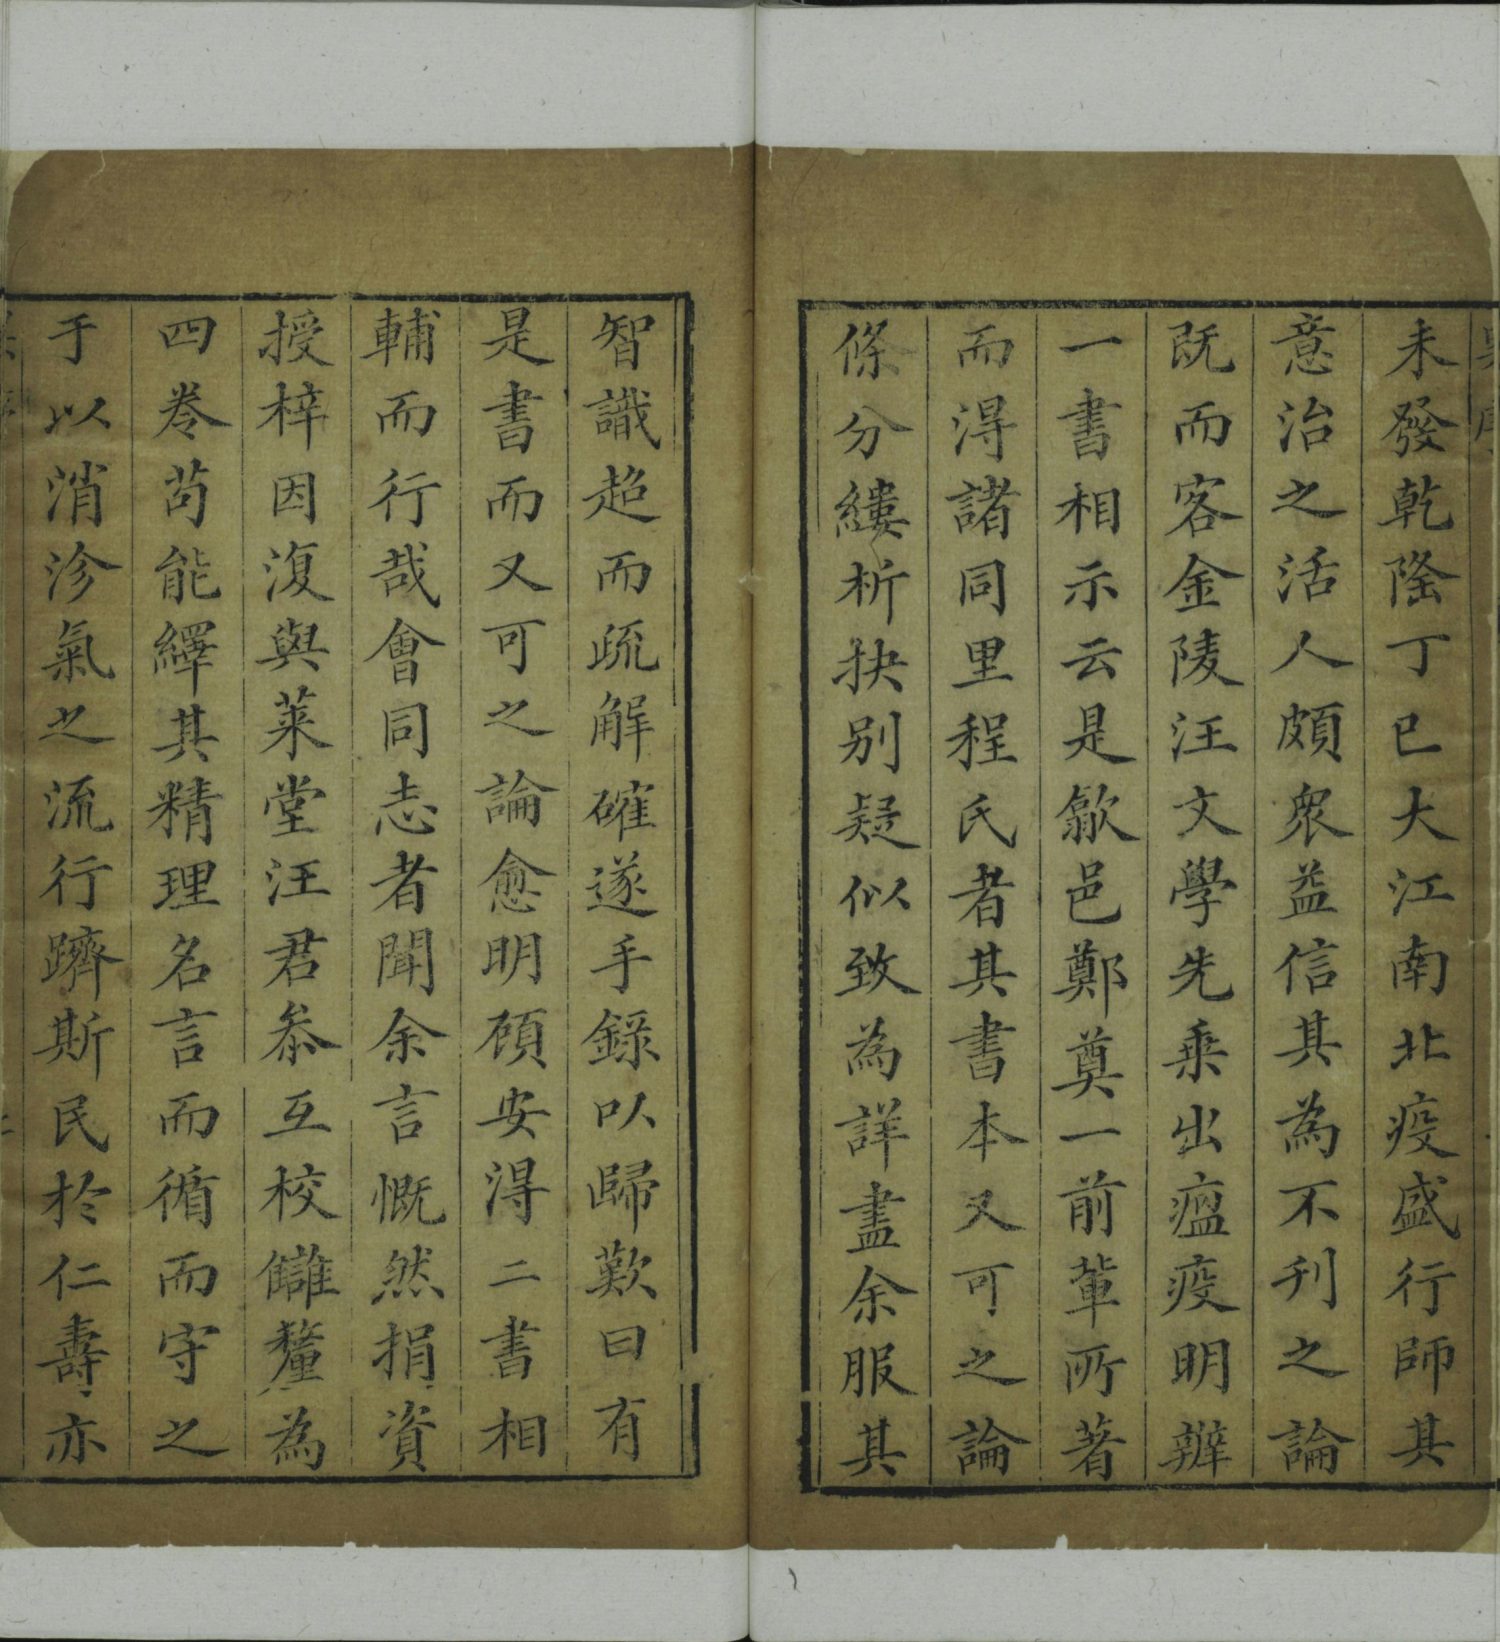 未發乾隆丁巳大江南北疫盛行師其
意治之活人頗衆益信其為不刊之論
既而客金陵汪文學先乗出瘟疫明辨
一書相示云是歙邑鄭奠一前軰所著
而得諸同里程氏者其書本又可之論
條分縷析抉别疑似致為詳盡余服其
智識超而疏解確遂手錄以歸歎曰有
是書而又可之論愈明顧安得二書相
輔而行哉會同志者聞余言慨然捐資
授梓因復與萊堂汪君叅互校讎釐為
四卷苟能繹其精理名言而循而守之
于以消沴氣之流行躋斯民於仁壽亦